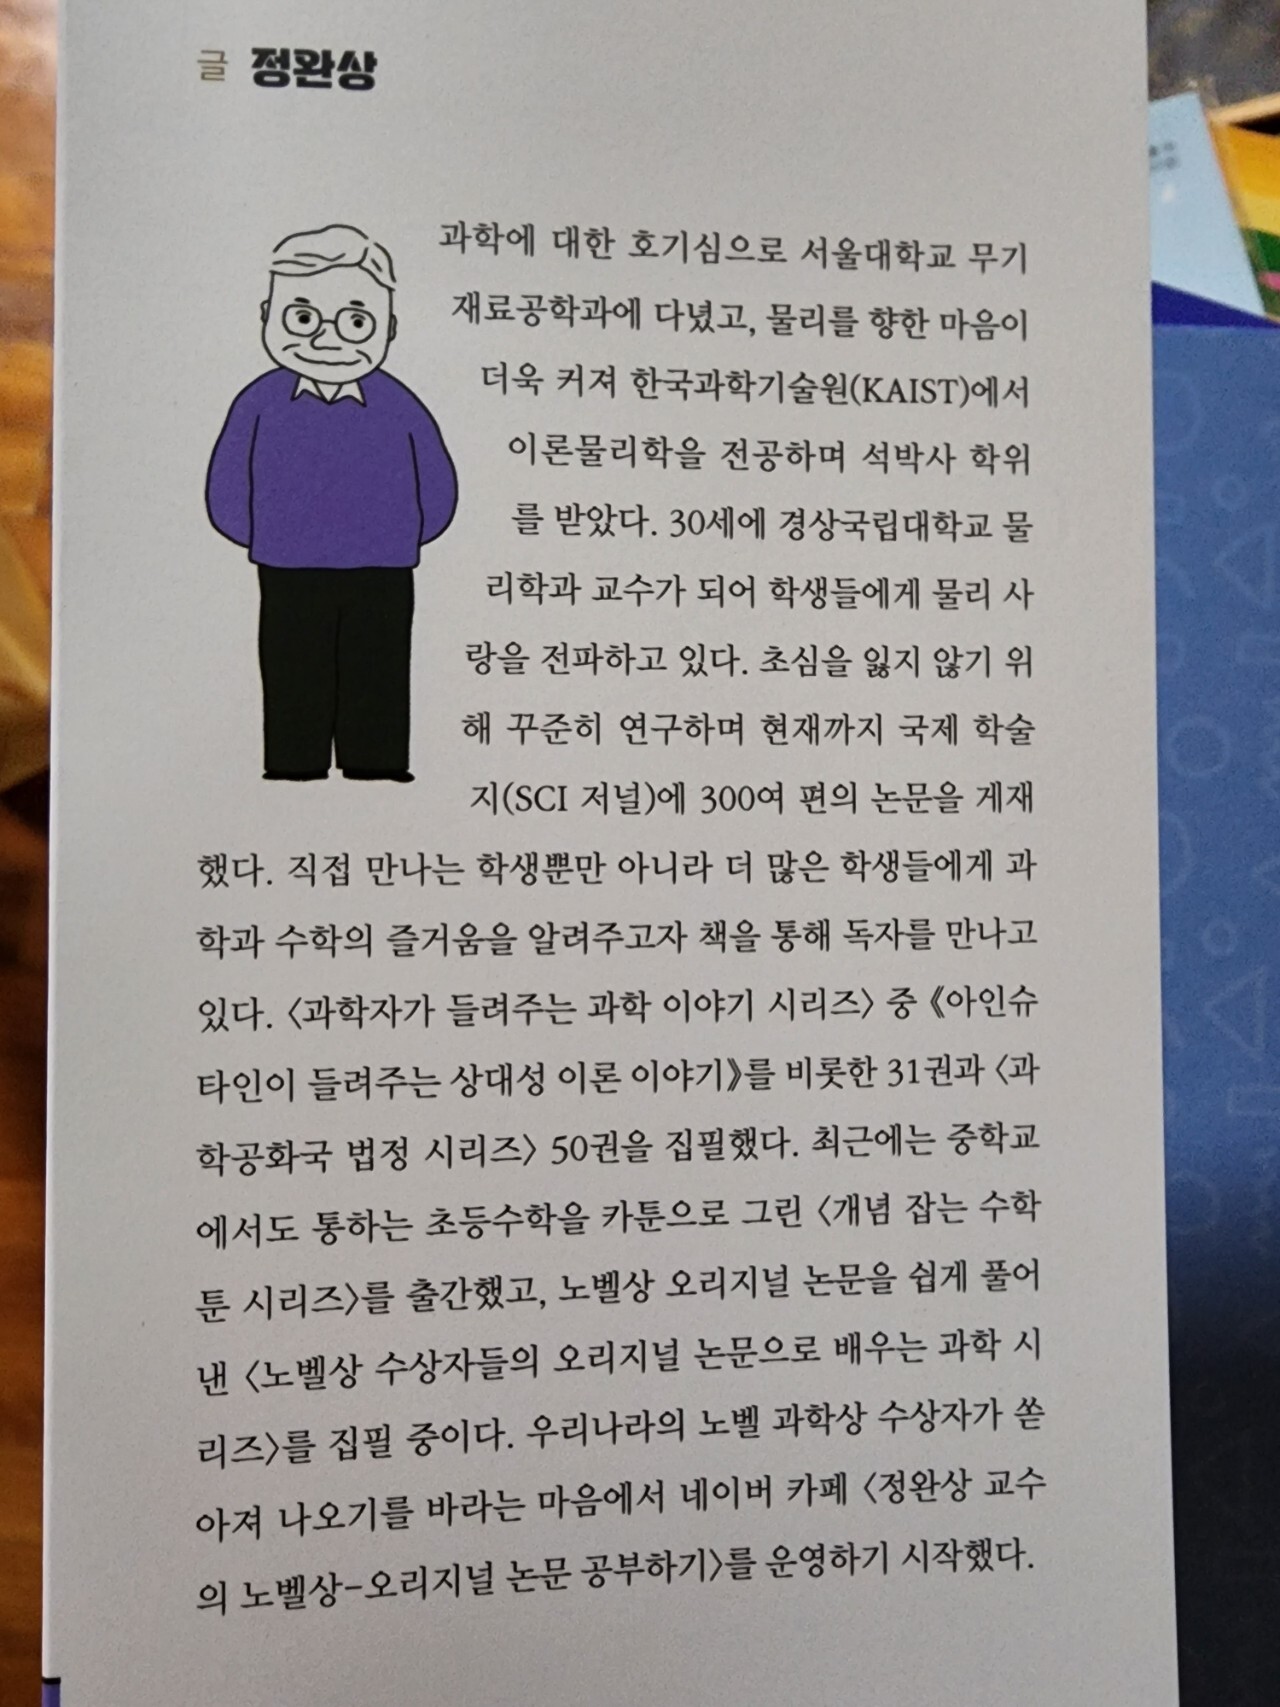 글 정완상
과학에 대한 호기심으로 서울대학교 무기
재료공학과에 다녔고, 물리를 향한 마음이
더욱 커져 한국과학기술원(KAIST)에서
이론물리학을 전공하며 석박사 학위
를 받았다. 30세에 경상국립대학교 물
리학과 교수가 되어 학생들에게 물리 사
랑을 전파하고 있다. 초심을 잃지 않기 위
해 꾸준히 연구하며 현재까지 국제 학술
지(SCI 저널)에 300여 편의 논문을 게재
했다. 직접 만나는 학생뿐만 아니라 더 많은 학생들에게 과
학과 수학의 즐거움을 알려주고자 책을 통해 독자를 만나고
있다. 〈과학자가 들려주는 과학 이야기 시리즈〉 중 《아인슈
타인이 들려주는 상대성 이론 이야기》를 비롯한 31권과 〈과
학공화국 법정 시리즈〉 50권을 집필했다. 최근에는 중학교
에서도 통하는 초등수학을 카툰으로 그린 〈개념 잡는 수학
툰 시리즈〉를 출간했고, 노벨상 오리지널 논문을 쉽게 풀어
낸 〈노벨상 수상자들의 오리지널 논문으로 배우는 과학 시
리즈〉를 집필 중이다. 우리나라의 노벨 과학상 수상자가 쏟
아져 나오기를 바라는 마음에서 네이버 카페 〈정완상 교수
의 노벨상-오리지널 논문 공부하기〉를 운영하기 시작했다.